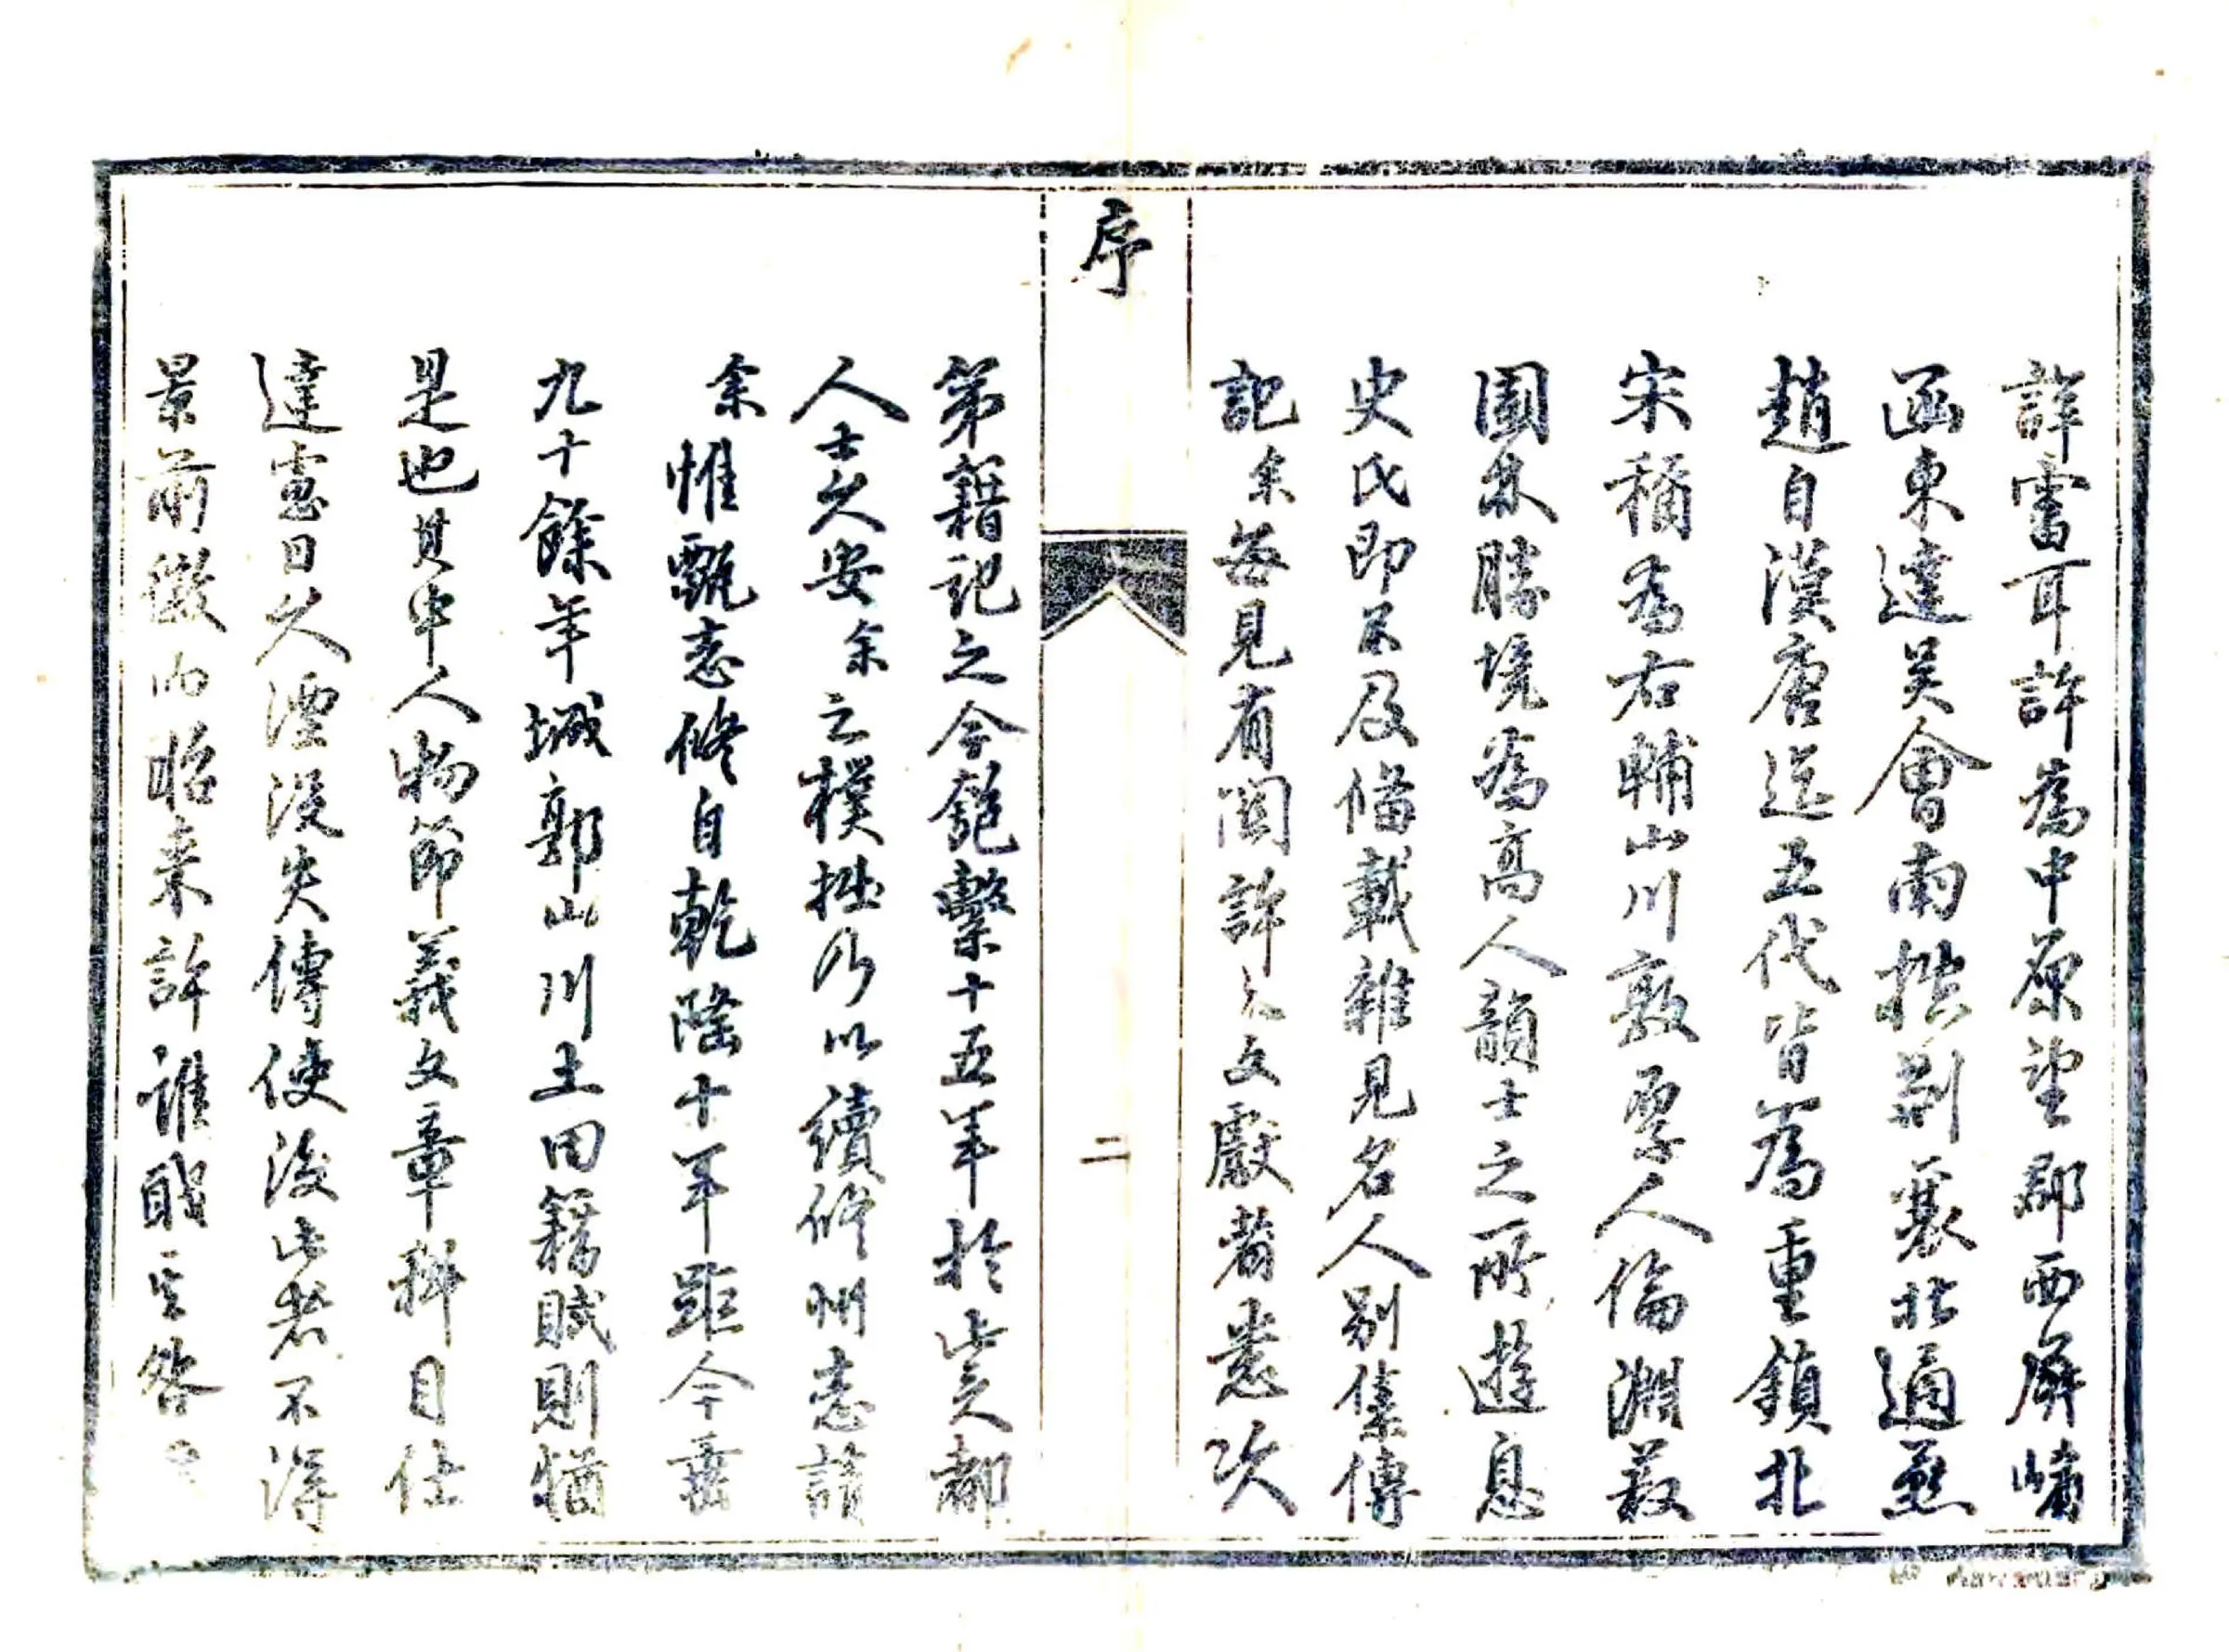 許當耳許為中原望郡西屏崤
函東達吳會南控荊襄北通燕
趙自漢唐迄五代皆為重鎮北
宋稱為右輔山川敦厚人倫淵藪
園林勝境為高人韻士之所遊息
史氏即不及備載雜見名人別集傳
記余每見有關許之文獻者悉次
序
二
第籍記之今匏繫十五年於此矣都
人士久安余之樸拙乃以續修州志請
余惟甄志修自乾隆十年距今垂
九十餘年城郭山川土田籍賦則猶
是也其中人物節義文章科目仕
達寖日久湮沒失傳使後此者不得
景前徽以昭來許誰職其咎